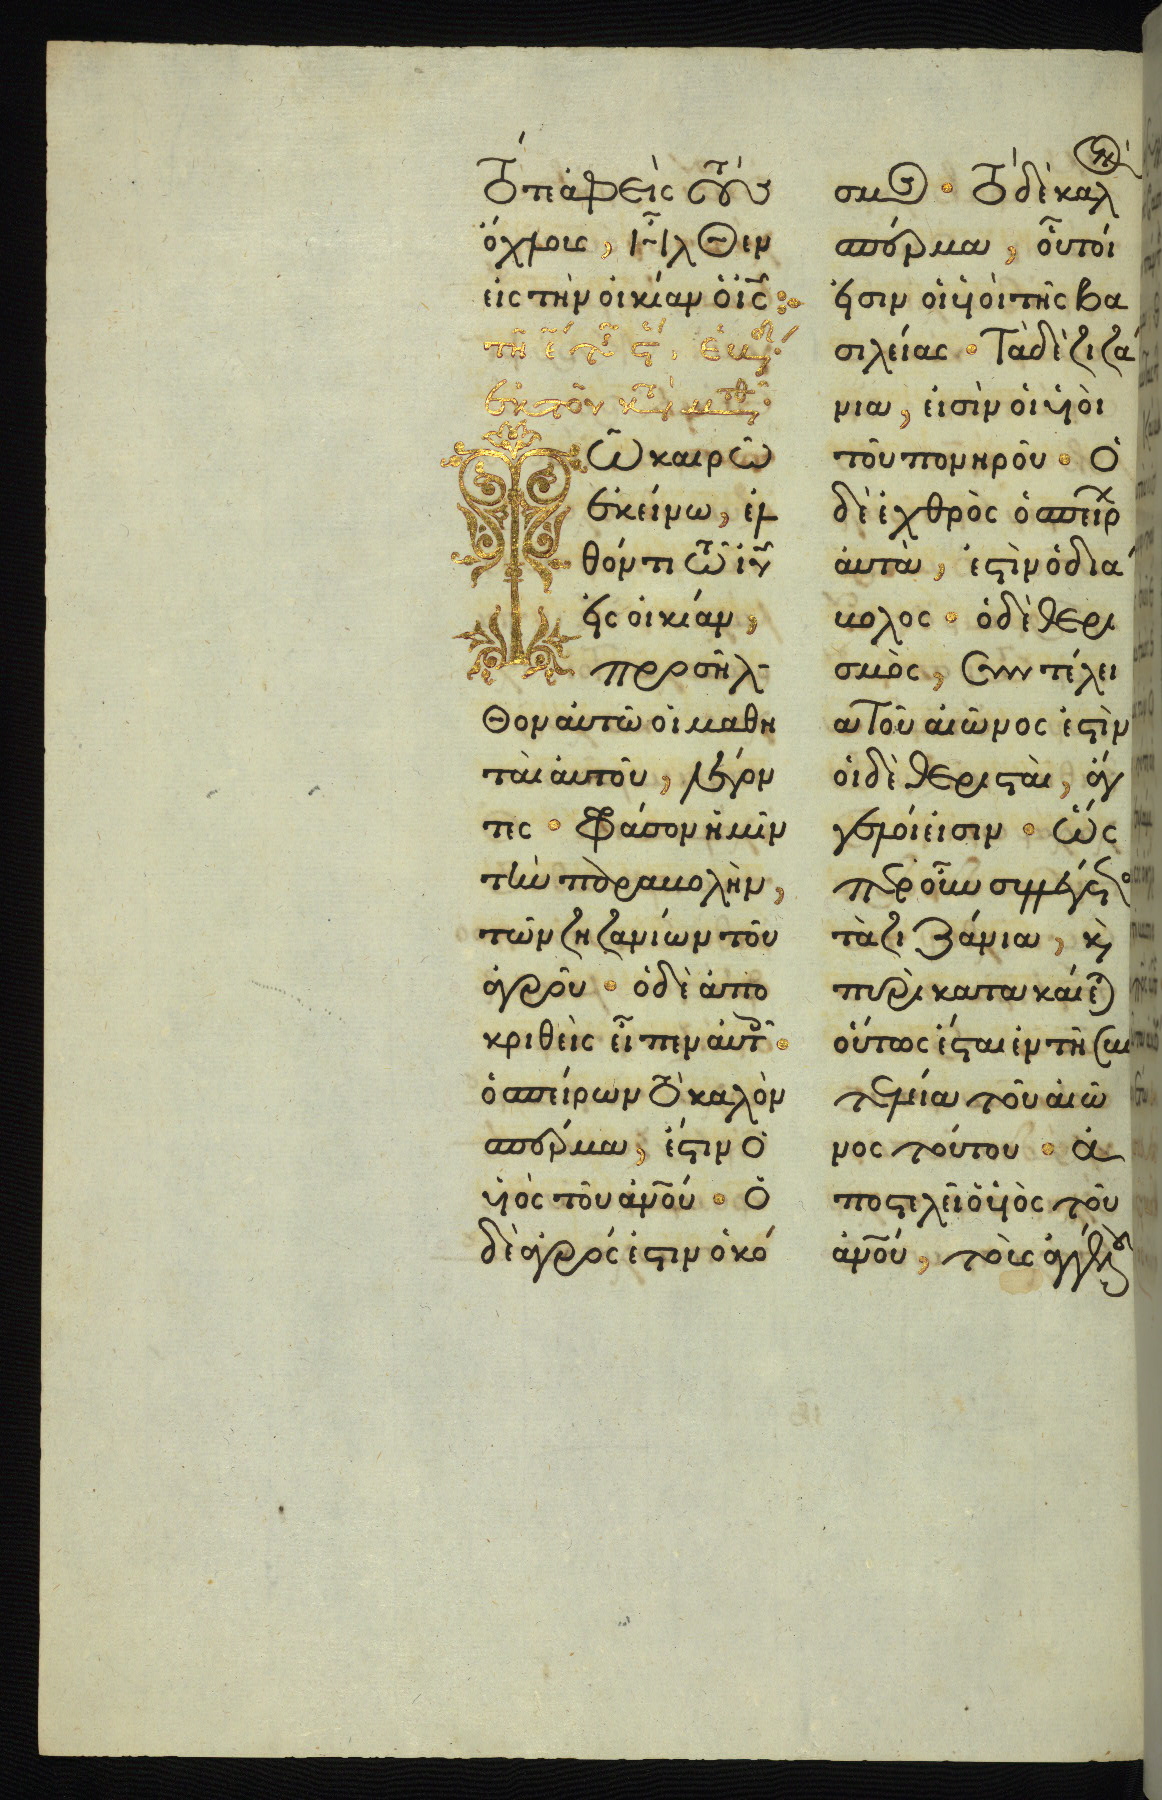 Τότε ἀφεὶς τοὺς
ὄχλους, ἦλθεν
εἰς τὴν οἰκίαν ὁ ἰ̅ς̅ :
τῇ ε̅
ἐκ τοῦ κατὰ ματθ
Τῶ καιρῶ
ἐκείνω, ἐλ
θόντι τῶ ἰ̅υ̅
εἰς οἰκίαν,
προσῆλ
θον αὐτῶ οἱ μαθη
ταὶ αὐτοῦ, λέγον
τες · Φράσον ἡμῖν
τὴν παραβολὴν,
τῶν ζηζανίων τοῦ
ἀγροῦ · ὁ δὲ ἀπο
κριθεὶς εἶπεν αὐτοῖς ·
ὁ σπείρων τὸ καλὸν
σπέρμα, ἐστιν ὁ
υἱὸς τοῦ ἀ̅ν̅ο̅υ̅ · Ὁ
δὲ ἀγρός ἐστιν ὁ κό
σμος · Τὸ δὲ καλὸν
σπέρμα, οὗτοί
εἰσιν οἱ υἱοὶ τῆς βα
σιλείας · Τὰ δὲ ζιζά
νια, εἰσὶν οἱ υἱοὶ
τοῦ πονηροῦ · Ὁ
δὲ ἐχθρὸς ὁ σπείρας
αὐτὰ, ἐστὶν ὁ διά
βολος · ὁ δὲ θερι
σμὸς, συντέλει
α τοῦ αἰῶνος ἐστὶν
οἱ δὲ θερισταὶ, ἄγ
γελοί εἰσιν · Ὥς
περ οὖν συλλέγεται
τὰ ζιζάνια, κὶ
πυρὶ κατακαίεται
οὕτως ἔσται ἐν τῆ συ
τελεία τοῦ αἰῶ
νος τούτου · Ἀ
ποστελεῖ ὁ υἱὸς τοῦ
ἀ̅ν̅ο̅υ̅, τοὺς ἀγγέλους